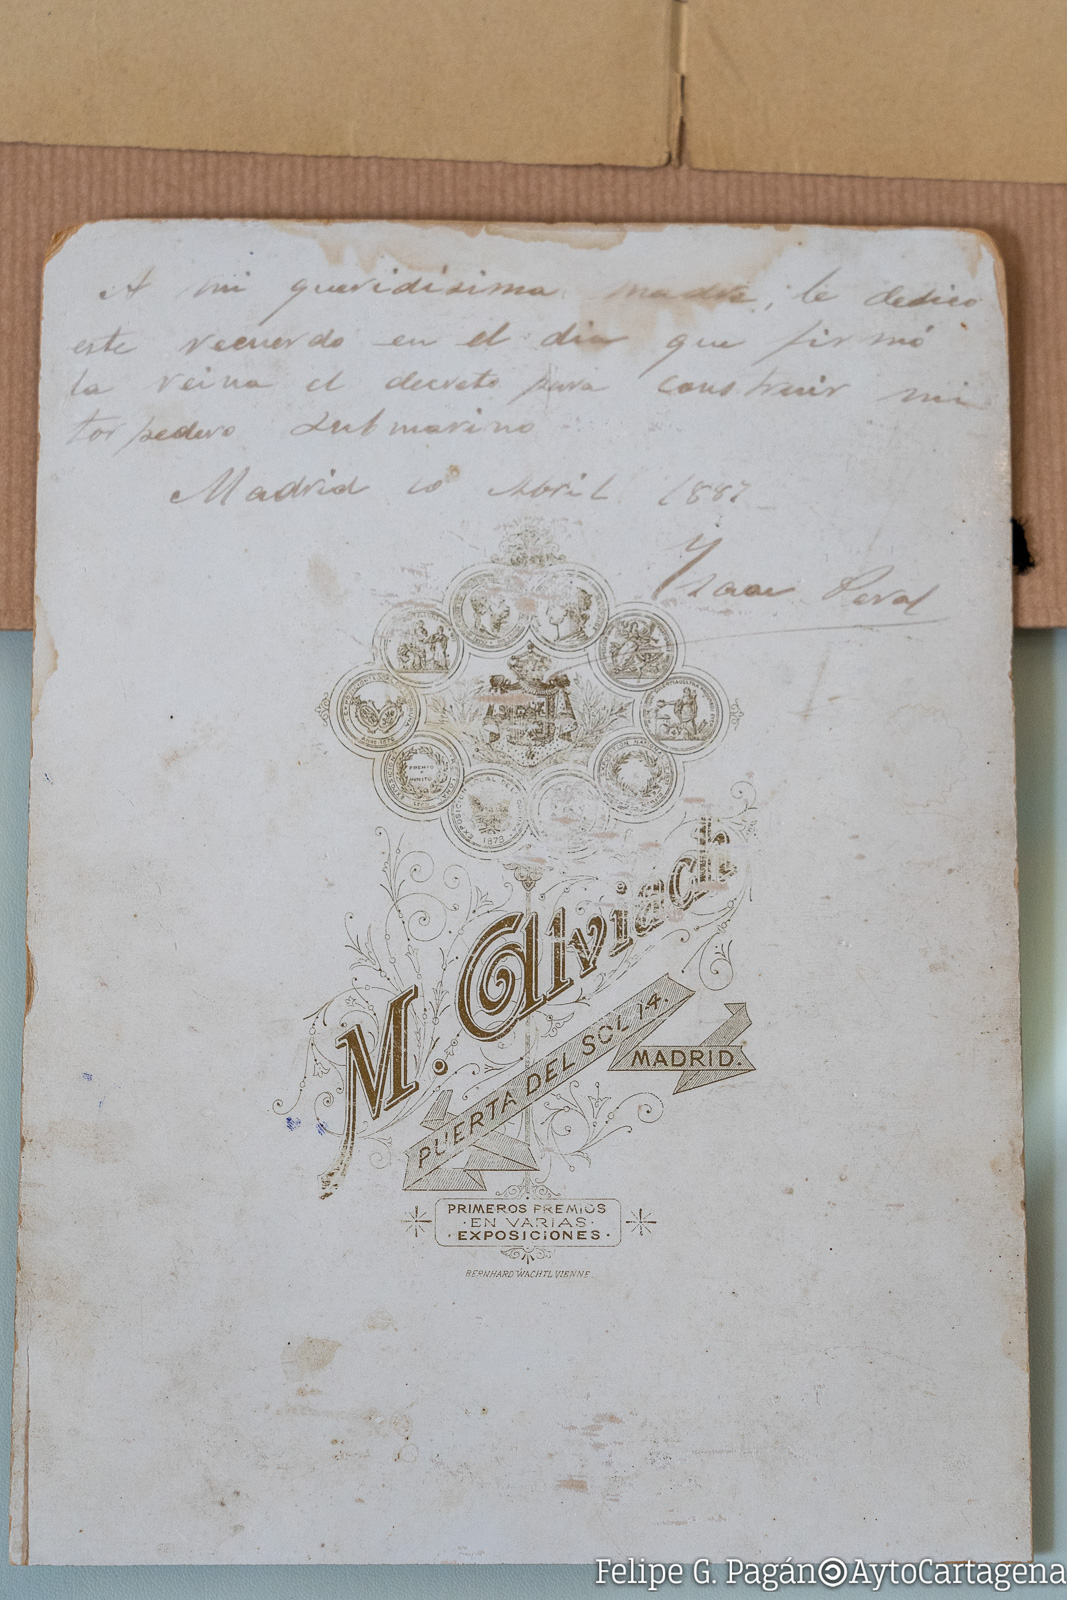 A mi queridísima madre, le dedico
este recuerdo en el dia que firmó
la reina el decreto para construir mi
torpedero submarino
Madrid 20 Abril 1887
Ysaac Peral
PREMIO
MERITO
1878
M. Alviach
PUERTA DEL SOL 14.
MADRID.
PRIMEROS PREMIOS
·EN VARIAS·
·EXPOSICIONES·
BERNHARD WACHTL VIENNE
Felipe G. Pagán AytoCartagena